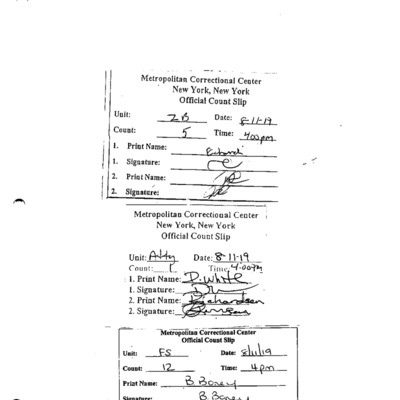 Metropolitan Correctional Center
New York, New York
Official Count Slip
Unit: ZB Date: 8-11-19
Count: 5 Time: 4:00pm
1. Print Name:
1. Signature:
2. Print Name:
2. Signature:
Metropolitan Correctional Center
New York, New York
Official Count Slip
Unit: Atty Date: 8-11-19
Count: 1 Time: 4:00pm
1. Print Name: D. White
1. Signature:
2. Print Name: Richardson
2. Signature:
Metropolitan Correctional Center
Official Count Slip
Unit: FS Date: 8/11/19
Count: 12 Time: 4pm
Print Name: B. Borey
Signature: B. Borey